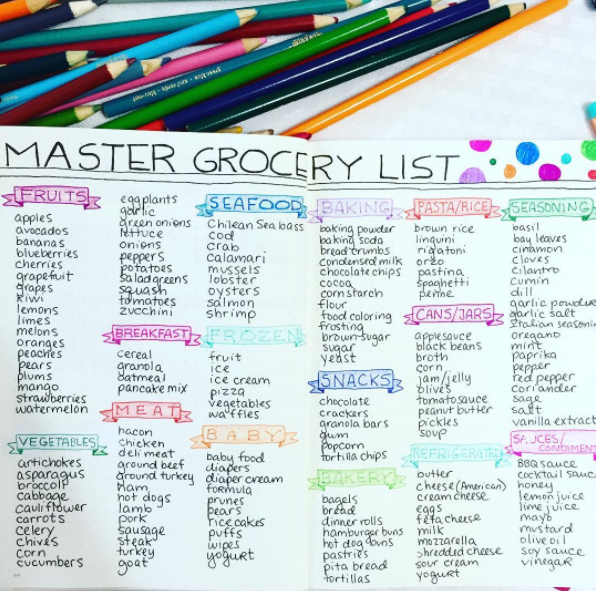 MASTER GROCERY LIST
FRUITS
apples
avocados
bananas
blueberries
cherries
grapefruit
grapes
kiwi
lemons
limes
melons
oranges
peaches
pears
plums
mango
strawberries
watermelon
VEGETABLES
artichokes
asparagus
broccoli
cabbage
cauliflower
carrots
celery
chives
corn
cucumbers
eggplants
garlic
green onions
lettuce
onions
peppers
potatoes
salad greens
squash
tomatoes
zucchini
BREAKFAST
cereal
granola
oatmeal
pancake mix
MEAT
bacon
chicken
deli meat
ground beef
ground turkey
ham
hot dogs
lamb
pork
sausage
steak
turkey
goat
SEAFOOD
Chilean Sea bass
cod
crab
calamari
mussels
lobster
oysters
salmon
shrimp
FROZEN
fruit
ice
ice cream
pizza
vegetables
waffles
BABY
baby food
diapers
diaper cream
formula
prunes
pears
rice cakes
puffs
wipes
yogurt
BAKING
baking powder
baking soda
breadcrumbs
condensed milk
chocolate chips
cocoa
corn starch
flour
food coloring
frosting
brown sugar
sugar
yeast
SNACKS
chocolate
crackers
granola bars
gum
popcorn
tortilla chips
BAKERY
bagels
bread
dinner rolls
hamburger buns
hot dog buns
pastries
pita bread
tortillas
PASTA/RICE
brown rice
linguini
rigatoni
orzo
pastina
spaghetti
penne
CANS/JARS
applesauce
black beans
broth
corn
jam/jelly
olives
tomato sauce
peanut butter
pickles
soup
REFRIGERATED
butter
cheese (American)
cream cheese
eggs
feta cheese
milk
mozzarella
shredded cheese
sour cream
yogurt
SEASONING
basil
bay leaves
cinnamon
cloves
cilantro
cumin
dill
garlic powder
garlic salt
Italian seasonin
oregano
mint
paprika
pepper
red pepper
coriander
sage
salt
vanilla extract
SAUCES/
CONDIMENT
BBQ sauce
cocktail sauce
honey
lemon juice
lime juice
mayo
mustard
olive oil
soy sauce
vinegar